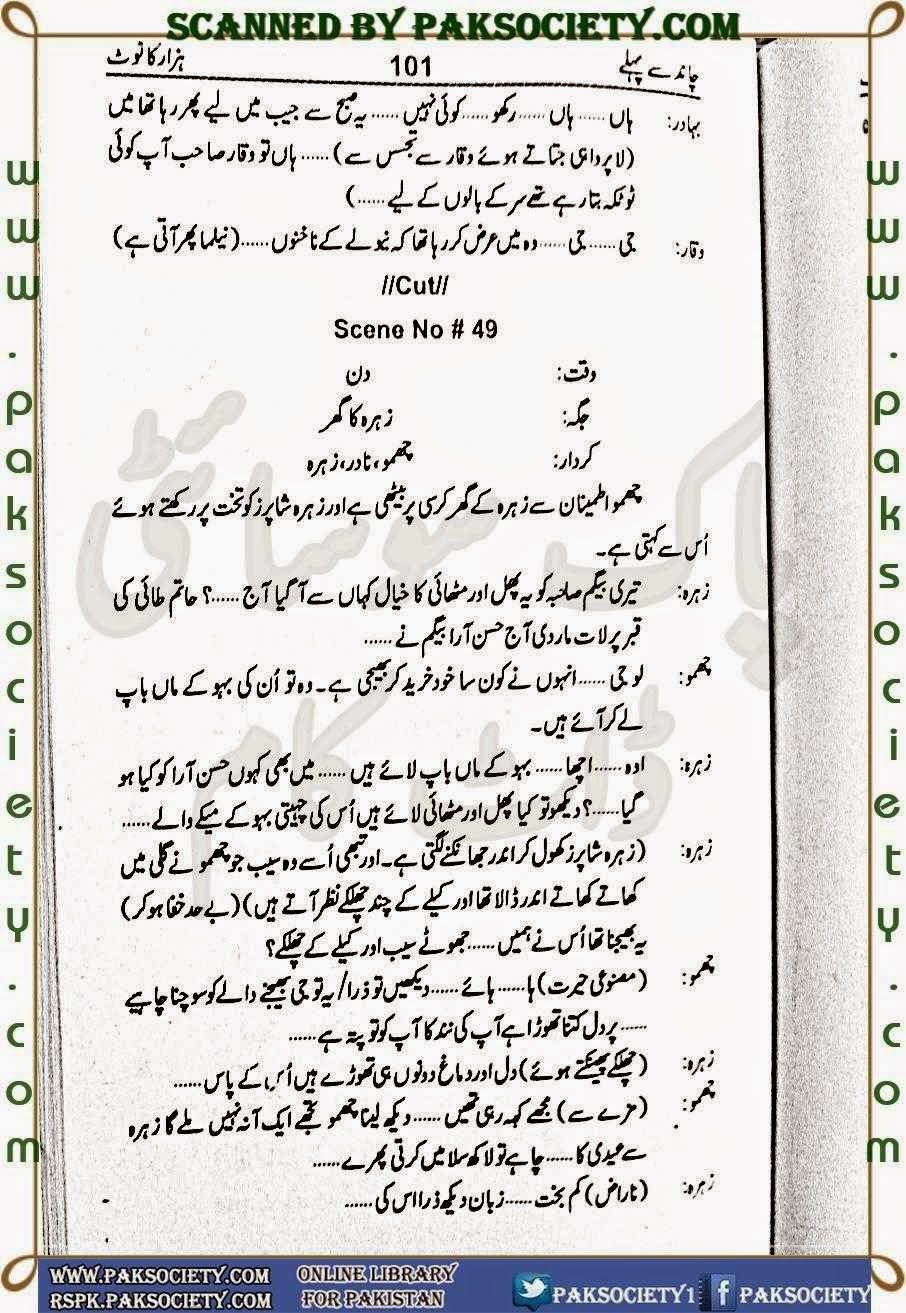 SCANNED BY PAKSOCIETY.COM
چاند سے پہلے 101 ہزار کا نوٹ
بہادر: ہاں ...... ہاں ...... رکھو ...... کوئی نہیں ...... یہ صبح سے جیب میں لیے پھر رہا تھا میں
(لاپرواہی جتاتے ہوئے وقار سے تجسس سے) ...... ہاں تو وقار صاحب آپ کوئی
ٹوٹکہ بتا رہے تھے سر کے بالوں کے لیے ......)
وقار: جی ...... جی ...... وہ میں عرض کر رہا تھا کہ نیولے کے ناخنوں ...... (نیلما پھر آتی ہے)
//Cut//
Scene No # 49
وقت: دن
جگہ: زہرہ کا گھر
کردار: چھمو، نادر، زہرہ
چھمو اطمینان سے زہرہ کے گھر کرسی پر بیٹھی ہے اور زہرہ شاپرز کو تخت پر رکھتے ہوئے
اُس سے کہتی ہے۔
زہرہ: تیری بیگم صاحبہ کو یہ پھل اور مٹھائی کا خیال کہاں سے آ گیا آج ......؟ حاتم طائی کی
قبر پر لات مار دی آج حسن آرا بیگم نے ......
چھمو: لو جی ...... انہوں نے کون سا خود خرید کر بھیجی ہے۔ وہ تو اُن کی بہو کے ماں باپ
لے کر آئے ہیں۔
زہرہ: اوہ ...... اچھا ...... بہو کے ماں باپ لائے ہیں ...... میں بھی کہوں حسن آرا کو کیا ہو
گیا ......؟ دیکھو تو کیا پھل اور مٹھائی لائے ہیں اُس کی چہیتی بہو کے میکے والے ......
زہرہ: (زہرہ شاپرز کھول کر اندر جھانکنے لگتی ہے۔ اور تبھی اُسے وہ سیب جو چھمو نے گلی میں
کھاتے کھاتے اندر ڈالا تھا اور کیلے کے چند چھلکے نظر آتے ہیں) (بے حد خفا ہو کر)
یہ بھیجنا تھا اُس نے ہمیں ...... جھوٹے سیب اور کیلے کے چھلکے؟
چھمو: (مصنوعی حیرت) ہا ...... ہائے ...... دیکھیں تو ذرا/ یہ تو جی بھیجنے والے کو سوچنا چاہیے
...... پر دل کتنا تھوڑا ہے آپ کی نند کا آپ کو تو پتہ ہے ......
زہرہ: (چھلکے پھینکتے ہوئے) دل اور دماغ دونوں ہی تھوڑے ہیں اُس کے پاس ......
چھمو: (مزے سے) مجھے کہہ رہی تھیں ...... دیکھ لینا چھمو تجھے ایک آنہ نہیں ملے گا زہرہ
سے عیدی کا ...... چاہے تو لاکھ سلامیں کرتی پھرے ......
زہرہ: (ناراض) کم بخت ...... زبان دیکھ ذرا اس کی ......
www.paksociety.com
www.paksociety.com
پاک سوسائٹی
ڈاٹ کام
WWW.PAKSOCIETY.COM ONLINE LIBRARY PAKSOCIETY1 PAKSOCIETY
RSPK.PAKSOCIETY.COM FOR PAKISTAN